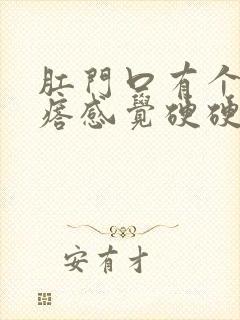 肛門口有个
痞感覺硬硬
安有才